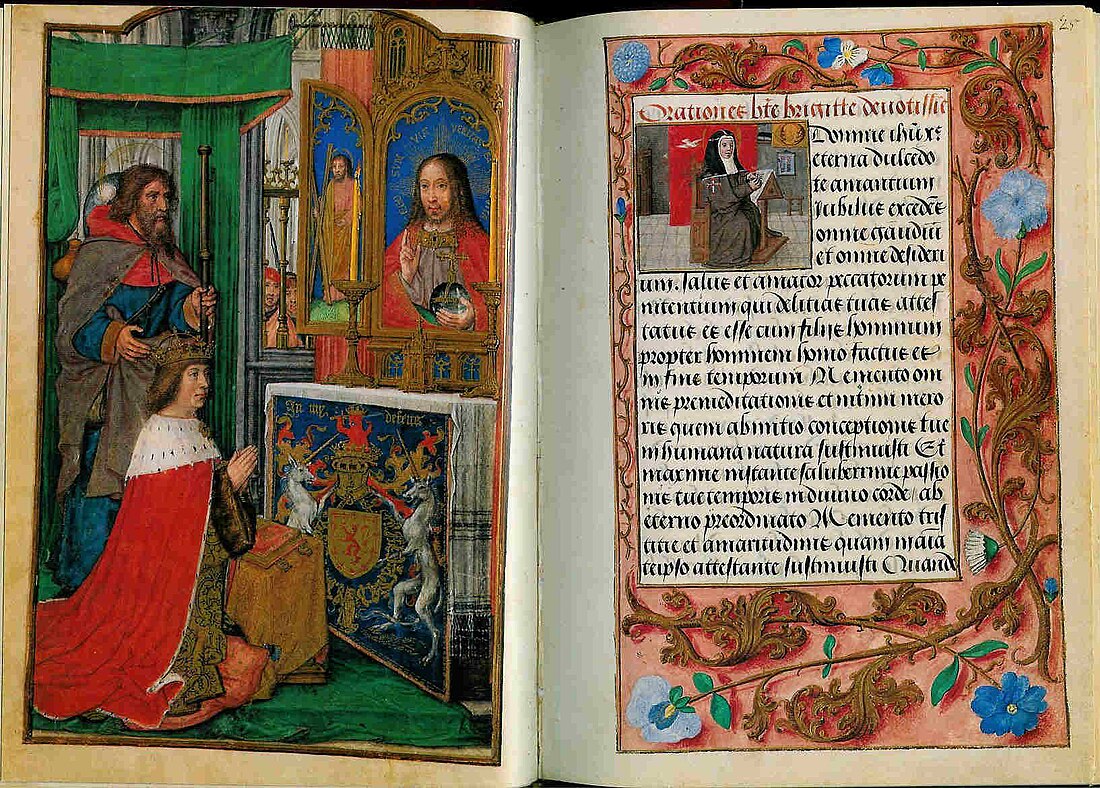 Ego sum Via veritas
In my defens
25
Orationes bte brigitte deuotissie
Domine ihu xpe
eterna dulcedo
te amantium
Jubilus excedēs
omne gaudiū
et omne desideri
um. salus et amator peccatorum pe
nitentium qui delitias tuas attes
tatus es esse cum filiis hominum
propter hominem homo factus es
in fine temporum Memento om
nis premeditationis et intimi mero
ris quem ab initio conceptionis tue
in humana natura sustinuisti Et
maxime instante saluberrime passio
nis tue tempore in diuino corde ab
eterno preordinato Memento tris
titie et amaritudinis quam in aīa
teipso attestante sustinuisti Quand